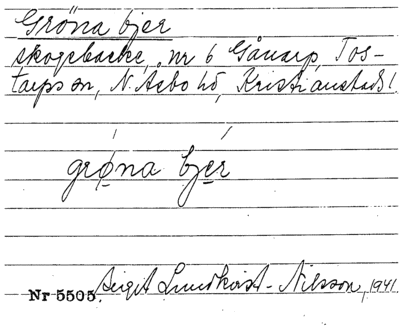 Gröna bjer
skogsbacke, nr 6 Gånarp, Tos-
tarps sn, N. Åsbo hd, Kristianstads l.
grøna bjer
Nr 5505. Birgit Lundkvist-Nilsson, 1941